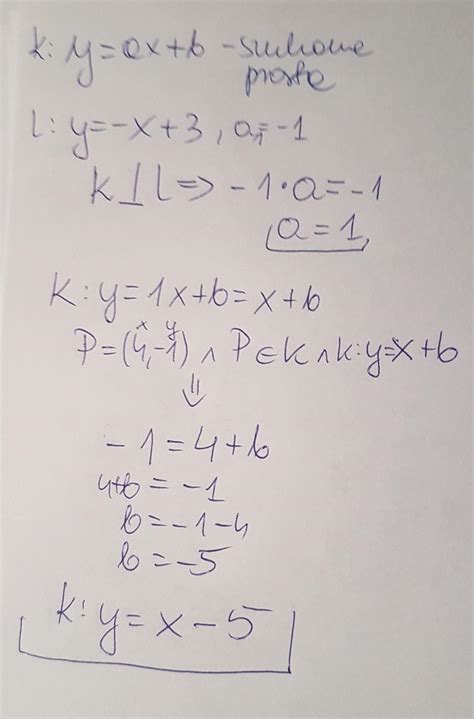 k: y=ax+b - szukana
prosta
l: y=-x+3, a₁=-1
k⊥l ⇒ -1·a=-1
a=1
k: y=1x+b=x+b
x y
P=(4,-1) ∧ P∈k ∧ k: y=x+b
⇓
-1=4+b
4+b=-1
b=-1-4
b=-5
k: y=x-5